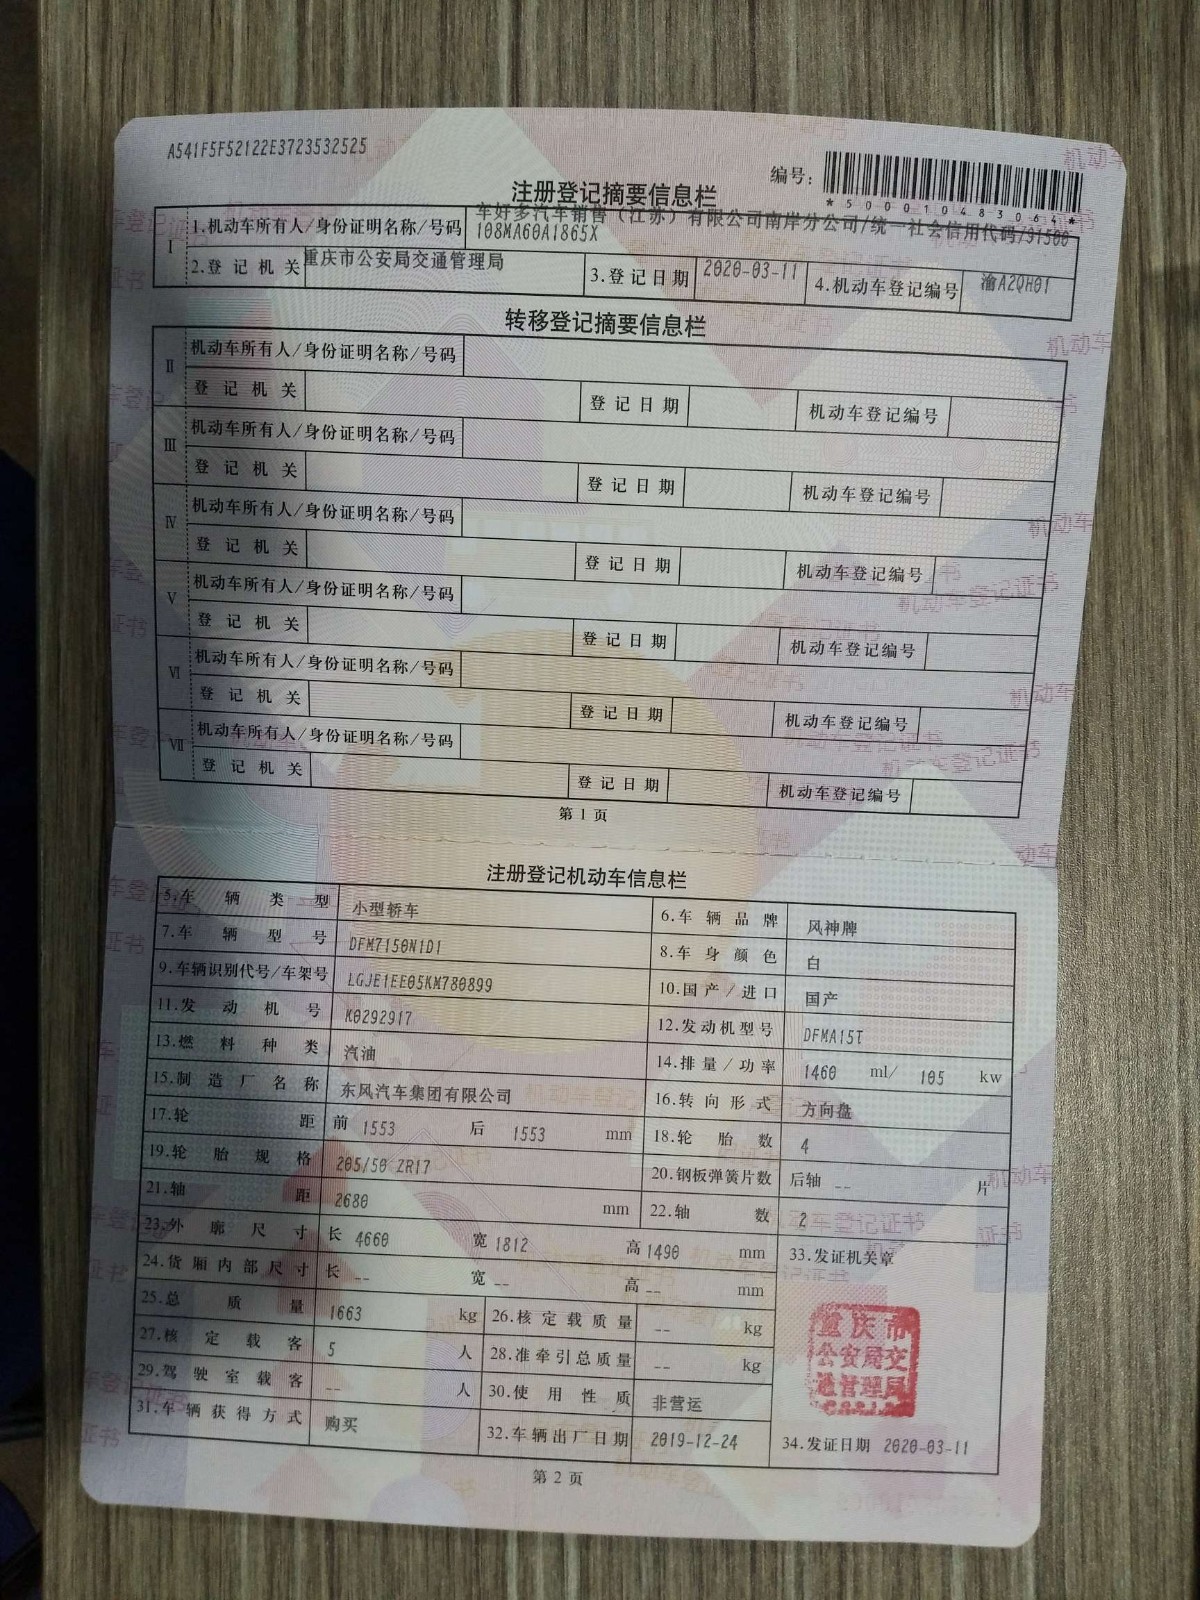 A541F5F52122E3723532525
编号:
*500010483064*
注册登记摘要信息栏
I
1.机动车所有人/身份证明名称/号码 车好多汽车销售(江苏)有限公司南岸分公司/统一社会信用代码/91500
108MA60A1865X
2.登记机关 重庆市公安局交通管理局 3.登记日期 2020-03-11 4.机动车登记编号 渝A2QH01
转移登记摘要信息栏
II 机动车所有人/身份证明名称/号码
登记机关 登记日期 机动车登记编号
III 机动车所有人/身份证明名称/号码
登记机关 登记日期 机动车登记编号
IV 机动车所有人/身份证明名称/号码
登记机关 登记日期 机动车登记编号
V 机动车所有人/身份证明名称/号码
登记机关 登记日期 机动车登记编号
VI 机动车所有人/身份证明名称/号码
登记机关 登记日期 机动车登记编号
VII 机动车所有人/身份证明名称/号码
登记机关 登记日期 机动车登记编号
第1页
注册登记机动车信息栏
5.车辆类型 小型轿车 6.车辆品牌 风神牌
7.车辆型号 DFM7150N1D1 8.车身颜色 白
9.车辆识别代号/车架号 LGJE1EE05KM780899 10.国产/进口 国产
11.发动机号 K0292917 12.发动机型号 DFMA15T
13.燃料种类 汽油 14.排量/功率 1460 ml/ 105 kw
15.制造厂名称 东风汽车集团有限公司 16.转向形式 方向盘
17.轮距 前 1553 后 1553 mm 18.轮胎数 4
19.轮胎规格 205/50 ZR17 20.钢板弹簧片数 后轴 -- 片
21.轴距 2680 mm 22.轴数 2
23.外廓尺寸 长 4660 宽 1812 高 1490 mm 33.发证机关章
24.货厢内部尺寸 长 -- 宽 -- 高 -- mm
25.总质量 1663 kg 26.核定载质量 -- kg
27.核定载客 5 人 28.准牵引总质量 -- kg
29.驾驶室载客 -- 人 30.使用性质 非营运
31.车辆获得方式 购买 32.车辆出厂日期 2019-12-24 34.发证日期 2020-03-11
重庆市
公安局交
通管理局
第2页